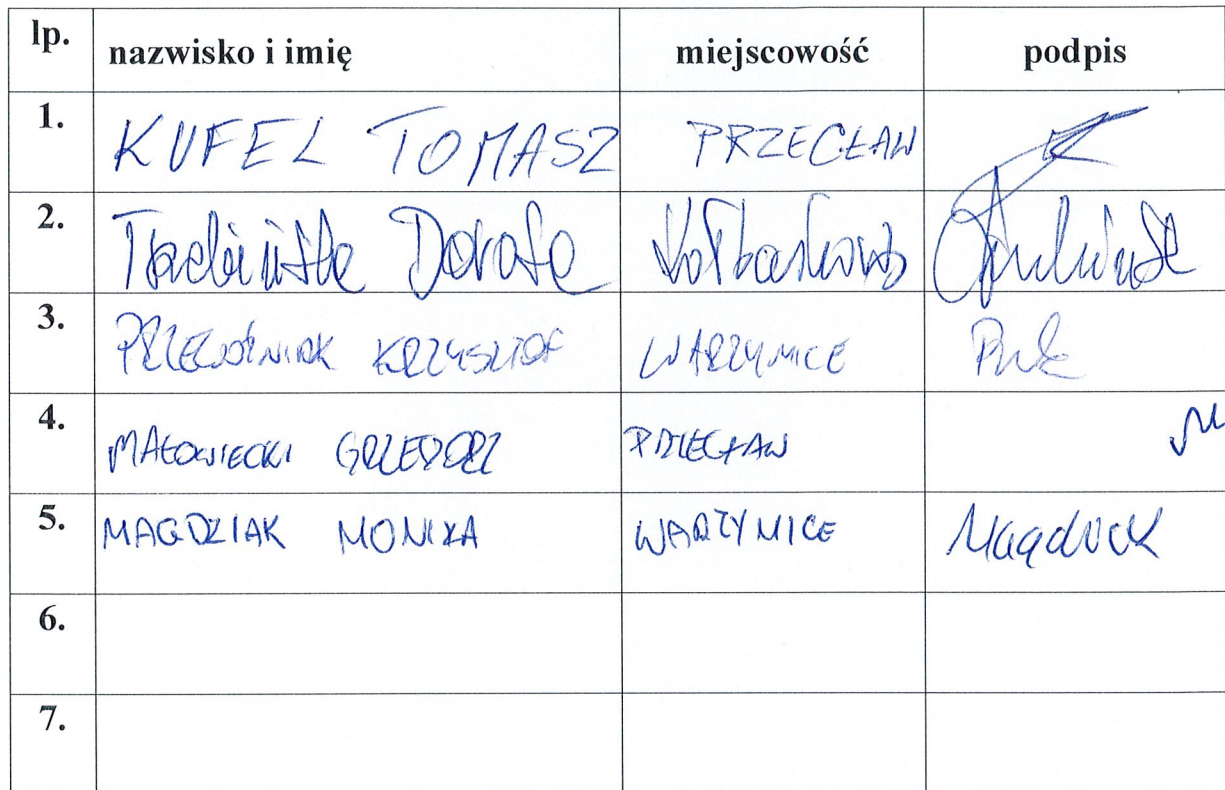 lp. nazwisko i imię miejscowość podpis
1. KUFEL TOMASZ PRZECŁAW
2. Trzebińska Dorota Kołbaskowo
3. PRZEWOŹNIAK KRZYSZTOF WARZYMICE
4. MAŁOWIECKI GRZEGORZ PRZECŁAW
5. MAGDZIAK MONIKA WARZYMICE Magdziak
6.
7.